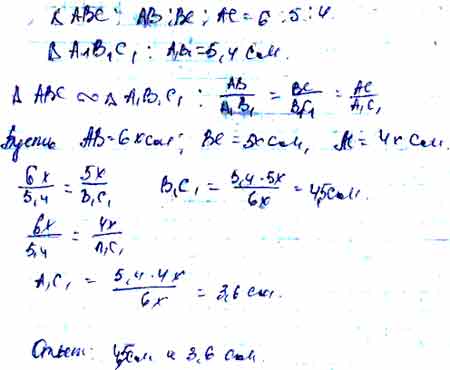 Δ ABC : AB : BC : AC = 6 : 5 : 4.
Δ A₁B₁C₁ : A₁B₁ = 5,4 см.
Δ ABC ∾ Δ A₁B₁C₁ : AB/A₁B₁ = BC/B₁C₁ = AC/A₁C₁
Пусть AB = 6x см; BC = 5x см, AC = 4x см.
6x/5,4 = 5x/B₁C₁ B₁C₁ = 5,4 · 5x/6x = 4,5 см.
6x/5,4 = 4x/A₁C₁
A₁C₁ = 5,4 · 4x/6x = 3,6 см.
Ответ: 4,5 см и 3,6 см.